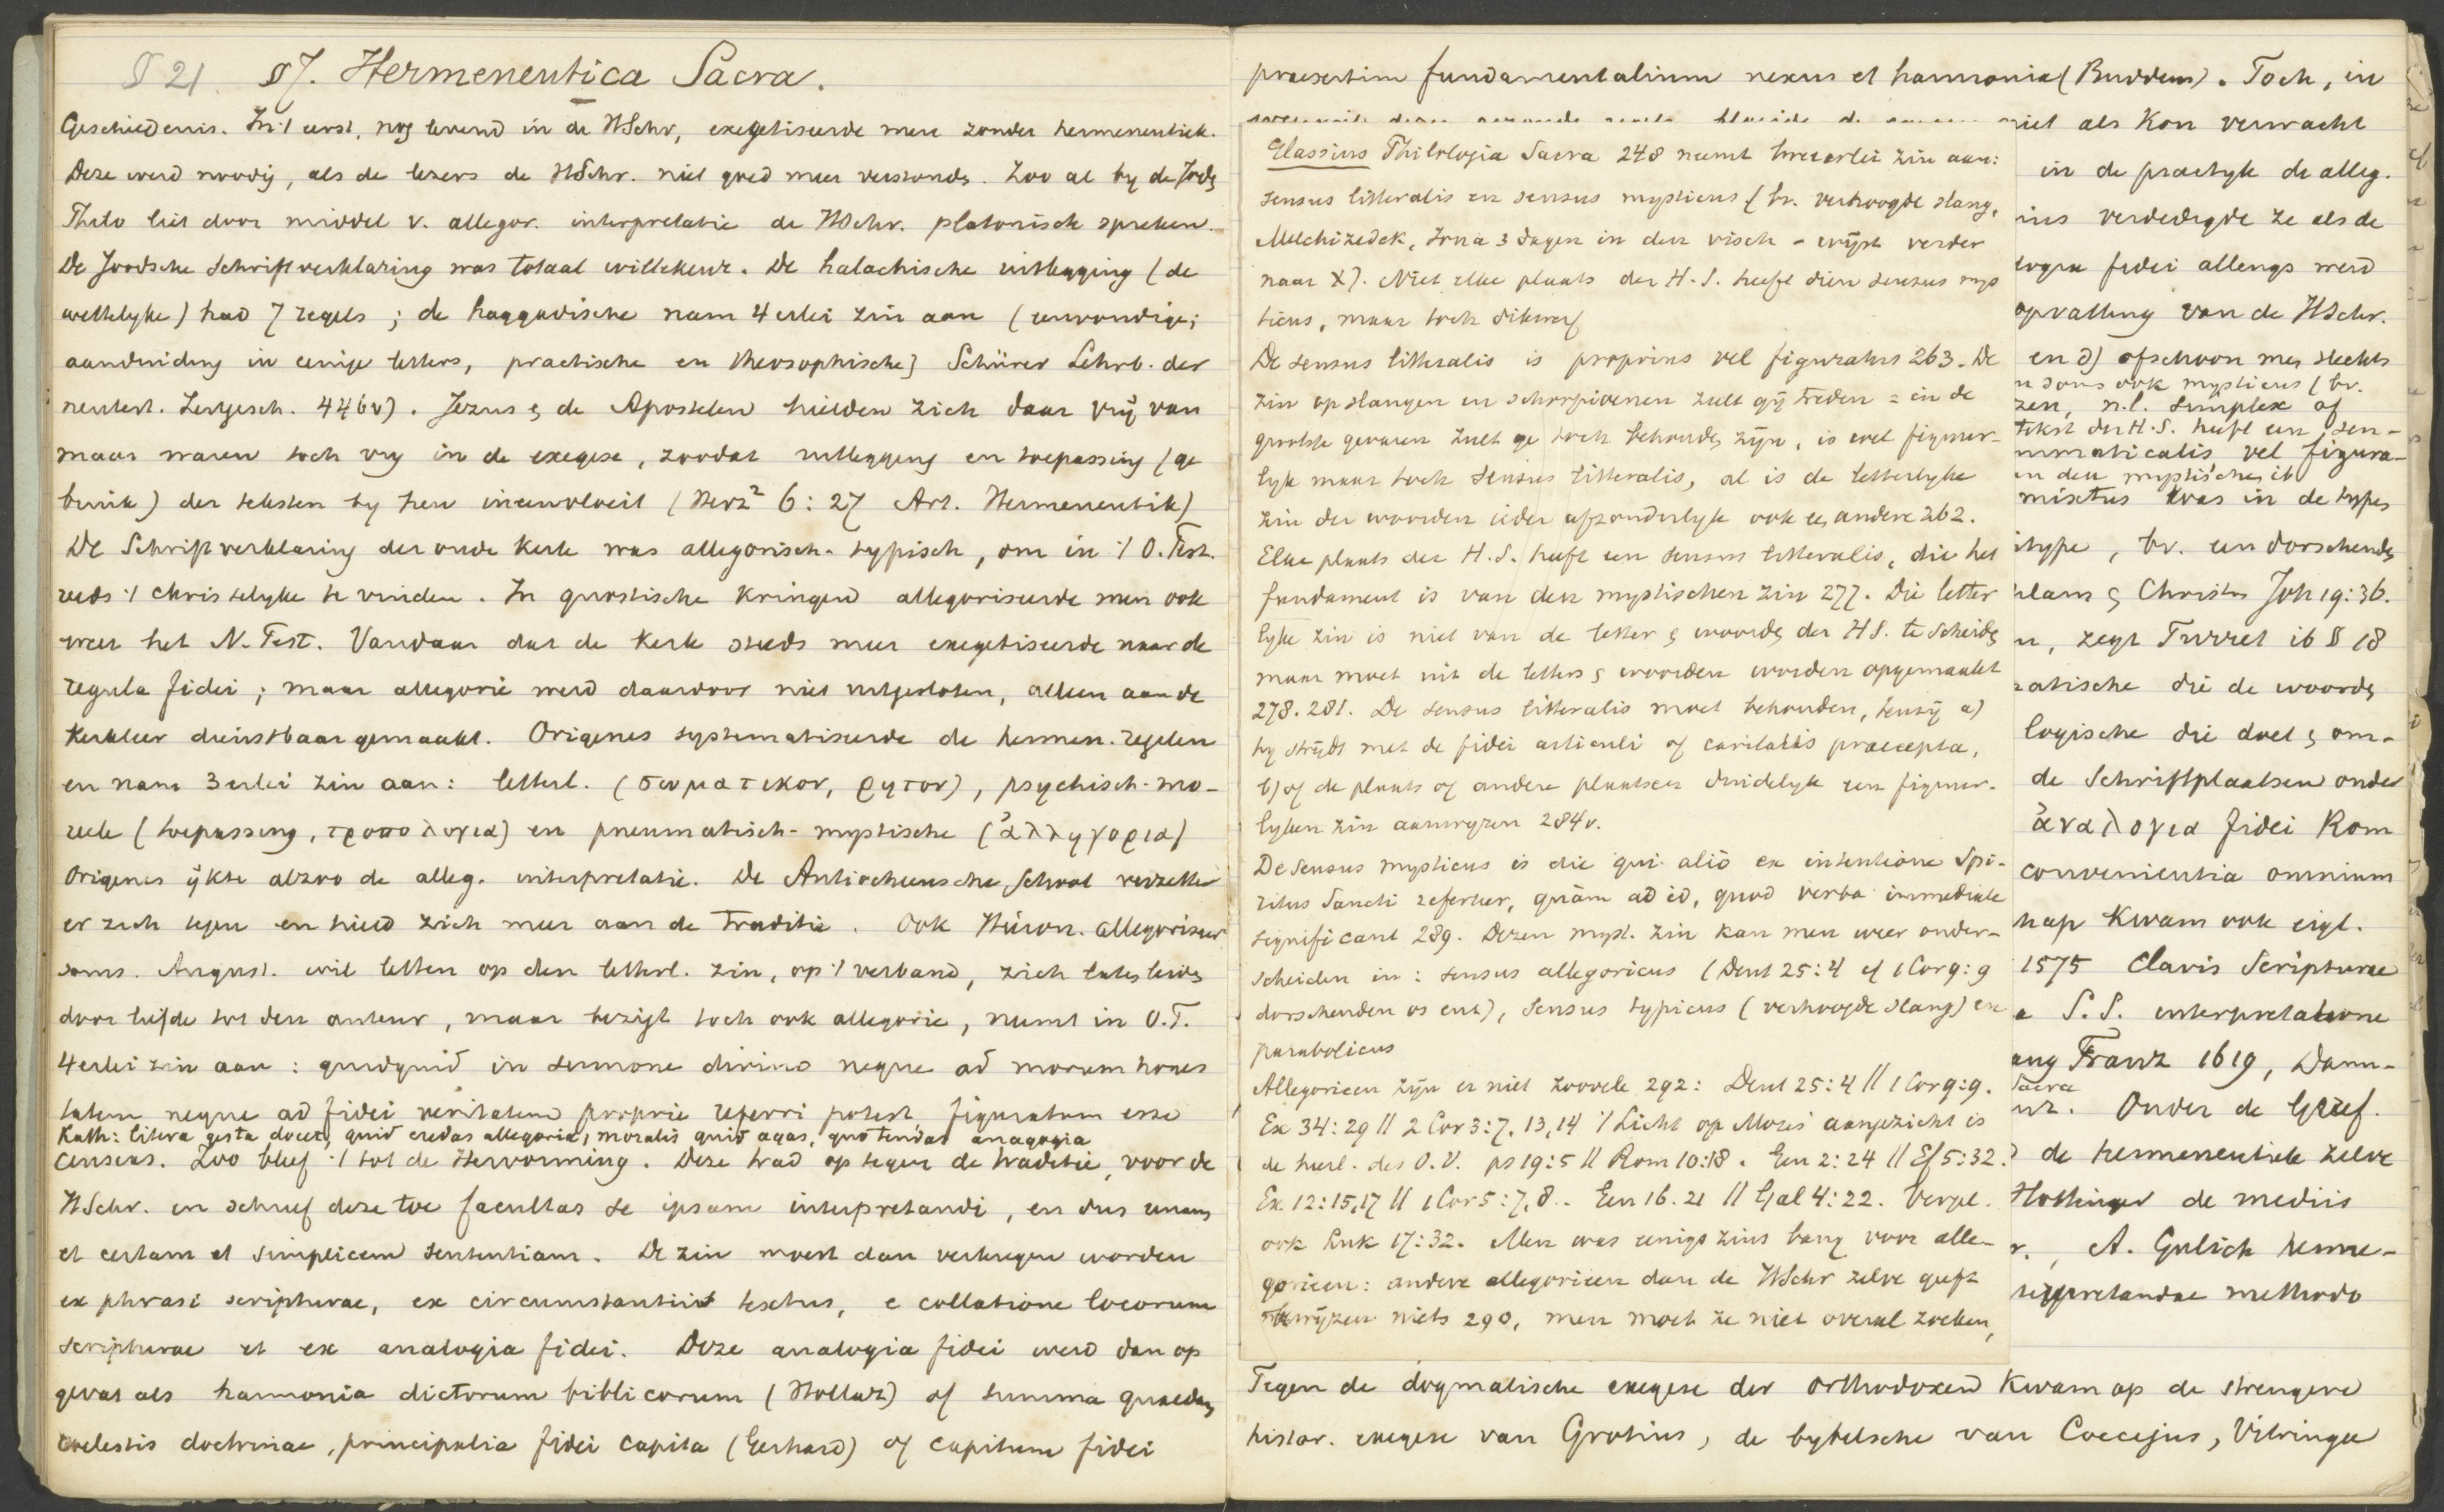 § 21 §7. Hermeneutica Sacra.
Geschiedenis. In 't eerst, nog levend in de HSchr, exegetiseerde men zonder hermeneutiek.
Deze werd noodig, als de lezers de HSchr. niet goed meer verstonden. Zoo al by de Joden
Philo liet door middel v. allegor. interpretatie de HSchr. platonisch spreken.
De Joodsche Schriftverklaring was totaal willekeur. De halachische uitlegging (de
wettelyke) had 7 regels; de haggadische nam 4erlei zin aan (eenvoudige;
aanduiding in eenige letters, practische en theosophische) Schürer Lehrb. der
neutest. Zeitgesch. 446v). Jezus en de Apostelen hielden zich daar vrij van
maar waren toch vrij in de exegese, zoodat uitlegging en toepassing (ge
bruik) der teksten by hen ineenvloeit (Herz² 6:27 Art. Hermeneutik)
De Schriftverklaring der oude Kerk was allegorisch-typisch, om in 't O. Test.
reeds 't christelyke te vinden. In gnostische Kringen allegoriseerde men ook
weer het N. Test. Vandaar dat de Kerk steeds meer exegetiseerde naar de
regula fidei; maar allegorie werd daardoor niet uitgesloten, alleen aan de
Kerkleer dienstbaar gemaakt. Origenes systematiseerde de hermen. regelen
en nam 3erlei zin aan: letterl. (σωματικον, ρητον), psychisch-mo-
reele (toepassing, τροπολογια) en pneumatisch-mystische (ἀλληγορια)
Origenes ijkte alzoo de alleg. interpretatie. De Antiocheensche School verzette
er zich tegen en hield zich meer aan de traditie. Ook Hieron. allegoriseer
soms. August. wil letten op den letterl. zin, op 't verband, zich laten leiden
door liefde tot den auteur, maar bezigt toch ook allegorie, neemt in O.T.
4erlei zin aan: quidquid in sermone divino neque ad morum hones
tatem neque ad fidei veritatem proprie referri potest figuratum esse
Kath: litera gesta docet, quid credas allegoria, moralis quid agas, quo tendas anagogia
censeas. Zoo bleef 't tot de Hervorming. Deze trad op tegen de traditie, voor de
HSchr. en schreef deze toe facultas se ipsam interpretandi, en dus unam
et certam et simplicem sententiam. De zin moest dan verkregen worden
ex phrasi scripturae, ex circumstantiis textus, e collatione locorum
scripturae et ex analogia fidei. Deze analogia fidei werd dan op
gevat als harmonia dictorum biblicorum (Hollaz) of summa quaedam
coelestis doctrinae, principalia fidei capita (Gerhard) of capitum fidei
praesertim fundamentalium nexus et harmonia (Buddeus). Toch, in
Glassius Philologia Sacra 248 neemt tweeerlei zin aan:
sensus litteralis en sensus mysticus (bv. verhoogde slang,
Melchizedek, Jona 3 dagen in den visch - wijst verder
naar X). Niet elke plaats der H.S. heeft dien sensus mys
ticus, maar toch dikwerf
De sensus litteralis is proprius vel figuratus 263. De
zin op slangen en schorpioenen zult gij treden = in de
grootste gevaren zult ge toch behouden zijn, is wel figuur-
lyk maar toch sensus litteralis, al is de letterlyke
zin der woorden ieder afzonderlyk ook een andere 262.
Elke plaats der H.S. heeft een sensus litteralis, die het
fundament is van den mystischen zin 277. Die letter
lyke zin is niet van de letter en woorden der HS. te scheiden
maar moet uit de letters en woorden worden opgemaakt
278. 281. De sensus litteralis moet behouden, tenzij a)
hy strydt met de fidei articuli of caritatis praecepta,
b) of de plaats of andere plaatsen duidelyk een figuur-
lyken zin aanwyzen 284v.
De sensus mysticus is die qui alio ex intentione Spi-
ritus Sancti refertur, quam ad id, quod verba immediate
significant 289. Dezen myst. zin kan men weer onder-
scheiden in: sensus allegoricus (Deut 25:4 cf 1 Cor 9:9
dorschenden os enz), sensus typicus (verhoogde slang) en
parabolicus
Allegorieen zyn er niet zoovele 292: Deut 25:4 // 1 Cor 9:9.
Ex 34:29 // 2 Cor 3:7, 13, 14 't Licht op Mozes' aangezicht is
de heerl. des O.V. ps 19:5 // Rom 10:18. Gen 2:24 // Ef 5:32.
Ex. 12:15,17 // 1 Cor 5:7,8. Gen 16. 21 // Gal 4:22. Vergel.
ook Luk 17:32. Men was eenigszins bang voor alle-
gorieen: andere allegorieen dan de HSchr zelve geeft
bewijzen niets 290, men moet ze niet overal zoeken,
niet als Kon verwacht
in de practyk de alleg.
ius verdedigde ze als de
logia fidei allengs werd
opvatting van de HSchr.
en d) ofschoon men slechts
n soms ook mysticus (bv.
zen, n.l. simplex of
tekst der H.S. heeft een sen-
mmaticalis vel figura-
en den mystischen ib
mixtus was in de types
itype, bv. een dorschenden
hlam en Christus Joh 19:36.
n, zegt Turret ib § 18
atische die de woorden
logische die doel en om-
de Schriftplaatsen onder
ἀναλογια fidei Rom
convenientia omnium
hap Kwam ook eigl.
1575 Clavis Scripturae
e S.S. interpretatione
ang Franz 1619, Dann-
Sacra
nz. Onder de Geref.
de hermeneutiek zelve
Hottinger de mediis
r., A. Gulich herme-
terpretandae methodo
Tegen de dogmatische exegese der orthodoxen Kwam op de strengere
histor. exegese van Grotius, de bybelsche van Coccejus, Vitringa